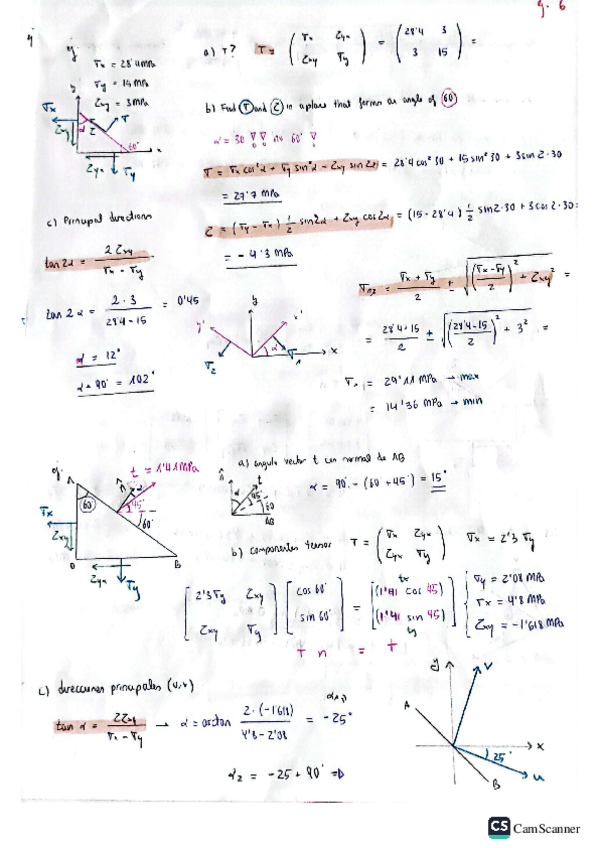 g. 6
σx = 28'4 MPa
σy = 15 MPa
Zxy = 3 MPa
a) T? Ty (σx Zyx / Zxy σy) = (28'4 3 / 3 15) =
b) Find σ and Z in a plane that forms an angle of 60
α = 30 no 60°
σ = σx cos²α + σy sin²α - Zxy sin 2α = 28'4 cos² 30 + 15 sin² 30 + 3 sin 2·30
= 27'7 MPa
Z = (σy - σx) 1/2 sin 2α + Zxy cos 2α = (15 - 28'4) 1/2 sin 2·30 + 3 cos 2·30 =
= - 4'3 MPa
c) Principal directions
tan 2α = 2 Zxy / σx - σy
tan 2α = 2·3 / 28'4 - 15 = 0'45
α = 12°
α + 90° = 102°
σ1,2 = σx + σy / 2 ± √((σx - σy / 2)² + Zxy²) =
= 28'4 + 15 / 2 ± √((28'4 - 15 / 2)² + 3²) =
σ1 = 29'11 MPa → max
= 14'36 MPa → min
y
y'
x'
x
σ2
α
σ1
σx
Zxy
Z
σ
60°
Zyx
σy
x
y
A
60
t = 1'41 MPa
n
α
45°
60°
σx
Zxy
O
Zyx
σy
B
a) angulo vector t con normal de AB
α = 90° - (60 + 45°) = 15°
n
t
45
60
AB
b) componentes tensor T = (σx Zyx / Zyx σy) σx = 2'3 σy
[2'3 σy Zxy / Zxy σy] [cos 60° / sin 60°] = [(1'41 cos 45) / (1'41 sin 45)]
tx
ty
σy = 2'08 MPa
σx = 4'8 MPa
Zxy = -1'618 MPa
T n = t
c) direcciones principales (u,v)
tan α = 2Zxy / σx - σy → α = arctan 2·(-1'618) / 4'8 - 2'08 = -25°
α2 = -25 + 90° =
y
v
A
x
25°
u
B
CS CamScanner